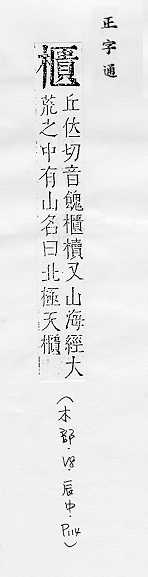 正字通
櫃
丘位切音餽櫃櫝又山海經大
荒之中有山名曰北極天櫃
(木部.18.辰中.P114)